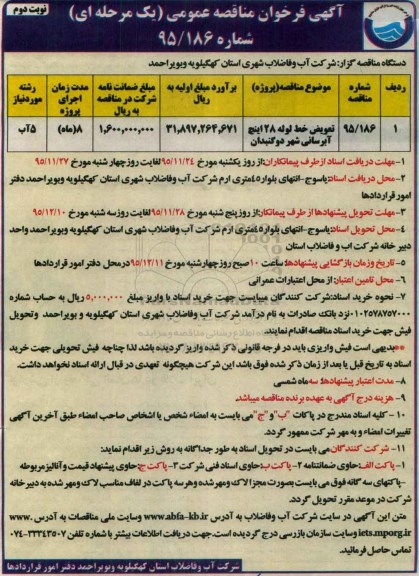 نوبت دوم
آگهی فرخوان مناقصه عمومی (یک مرحله ای)
شماره ۹۵/۱۸۶
دستگاه مناقصه گزار: شرکت آب وفاضلاب شهری استان کهگیلویه وبویراحمد.
ردیف
شماره مناقصه
موضوع مناقصه(پروژه)
برآورد مبلغ اولیه به ریال
مبلغ ضمانت نامه شرکت در مناقصه به ریال
مدت زمان اجرای پروژه
رشته موردنیاز
۱
۹۵/۱۸۶
تعویض خط لوله ۲۸ اینچ آبرسانی شهر دوگنبدان
۳۱,۸۹۷,۲۶۴,۶۷۱
۱,۶۰۰,۰۰۰,۰۰۰
۸(ماه)
۵آب
۱- مهلت دریافت اسناد ازطرف پیمانکاران:از روز یکشنبه مورخ ۹۵/۱۱/۲۴ لغایت روزچهار شنبه مورخ ۹۵/۱۱/۲۷
۲-محل دریافت اسناد:یاسوج-انتهای بلوار۴۵متری ارم شرکت آب وفاضلاب شهری استان کهگیلویه وبویراحمد دفتر
امور قراردادها
۳- مهلت تحویل پیشنهادها از طرف پیمانکاران:از روز پنج شنبه مورخ ۹۵/۱۱/۲۸ لغایت روزسه شنبه مورخ ۹۵/۱۲/۱۰
۴- محل تحویل اسناد:یاسوج-انتهای بلوار۴۵متری ارم شرکت آب وفاضلاب شهری استان کهگیلویه وبویراحمد واحد
دبیر خانه شرکت اب و فاضلاب استان
۵- تاریخ وزمان بازگشایی پیشنهادها: ساعت ۱۰ صبح روزچهارشنبه مورخ ۹۵/۱۲/۱۱ درمحل دفتر امور قراردادها
۶- محل تامین اعتبار: از محل اعتبارات عمرانی
۷- نحوه خرید اسناد:شرکت کنندگان میبایست جهت خرید اسناد با واریز مبلغ ۵,۰۰۰,۰۰۰ ریال به حساب شماره
۰۱۰۲۵۷۸۷۵۷۰۰۰ نزد بانک صادرات به نام درآمد شرکت آب وفاضلاب شهری استان کهگیلویه و بویراحمد وتحویل
فیش جهت خرید اسناد مناقصه اقدام نمایند.
**بدیهی است فیش واریزی باید در فرجه قانونی ذکر شده واریز گردیده باشد لذا چناچه فیش تحویلی جهت خرید
اسناد به تاریخ قبل یا بعد از زمان ذکر شده فوق باشد این شرکت هیچگونه تعهدی در قبال ارائه اسناد نخواهد داشت.
۸- مدت اعتبار پیشنهادها: سه ماه شمسی
۹- هزینه درج آگهی به عهده برنده مناقصه میباشد.
۱۰- کلیه اسناد مندرج در پاکات "ب"و"ج"می بایست به امضاء شخص یا اشخاص صاحب امضاء طبق آخرین آگهی
تغییرات امضاء و به مهر شرکت ممهور گردد.
۱۱- شرکت کنندگان می بایست در تحویل اسناد به طور جداگانه به روش زیر اقدام نمایند:
۱-پاکت الف:حاوی ضمانتنامه ۲-پاکت ب:حاوی اسناد فنی شرکت ۳-پاکت ج:حاوی پیشنهاد قیمت و آنالیزمربوطه
-پاکتهای سه گانه فوق می بایست بصورت مجزا لاک ومهرشده وهرسه پاکت در لفاف مناسب لاک ومهر شده به دبیرخانه
شرکت در موعد مقرر تحویل گردد.
متن این آگهی در سایت شرکت آب وفاضلاب به آدرس www.abfa-kb.ir وسایت ملی مناقصات به آدرس www.
iets.mporg.ir وسایت سازمان بازرسی درج گردیده است.جهت دریافت اطلاعات بیشتر با شماره تلفن ۳۳۳۴۳۵۰۷-۰۷۴
تماس حاصل فرمائید.
شرکت آب وفاضلاب استان کهگیلویه وبویراحمد دفتر امور قراردادها